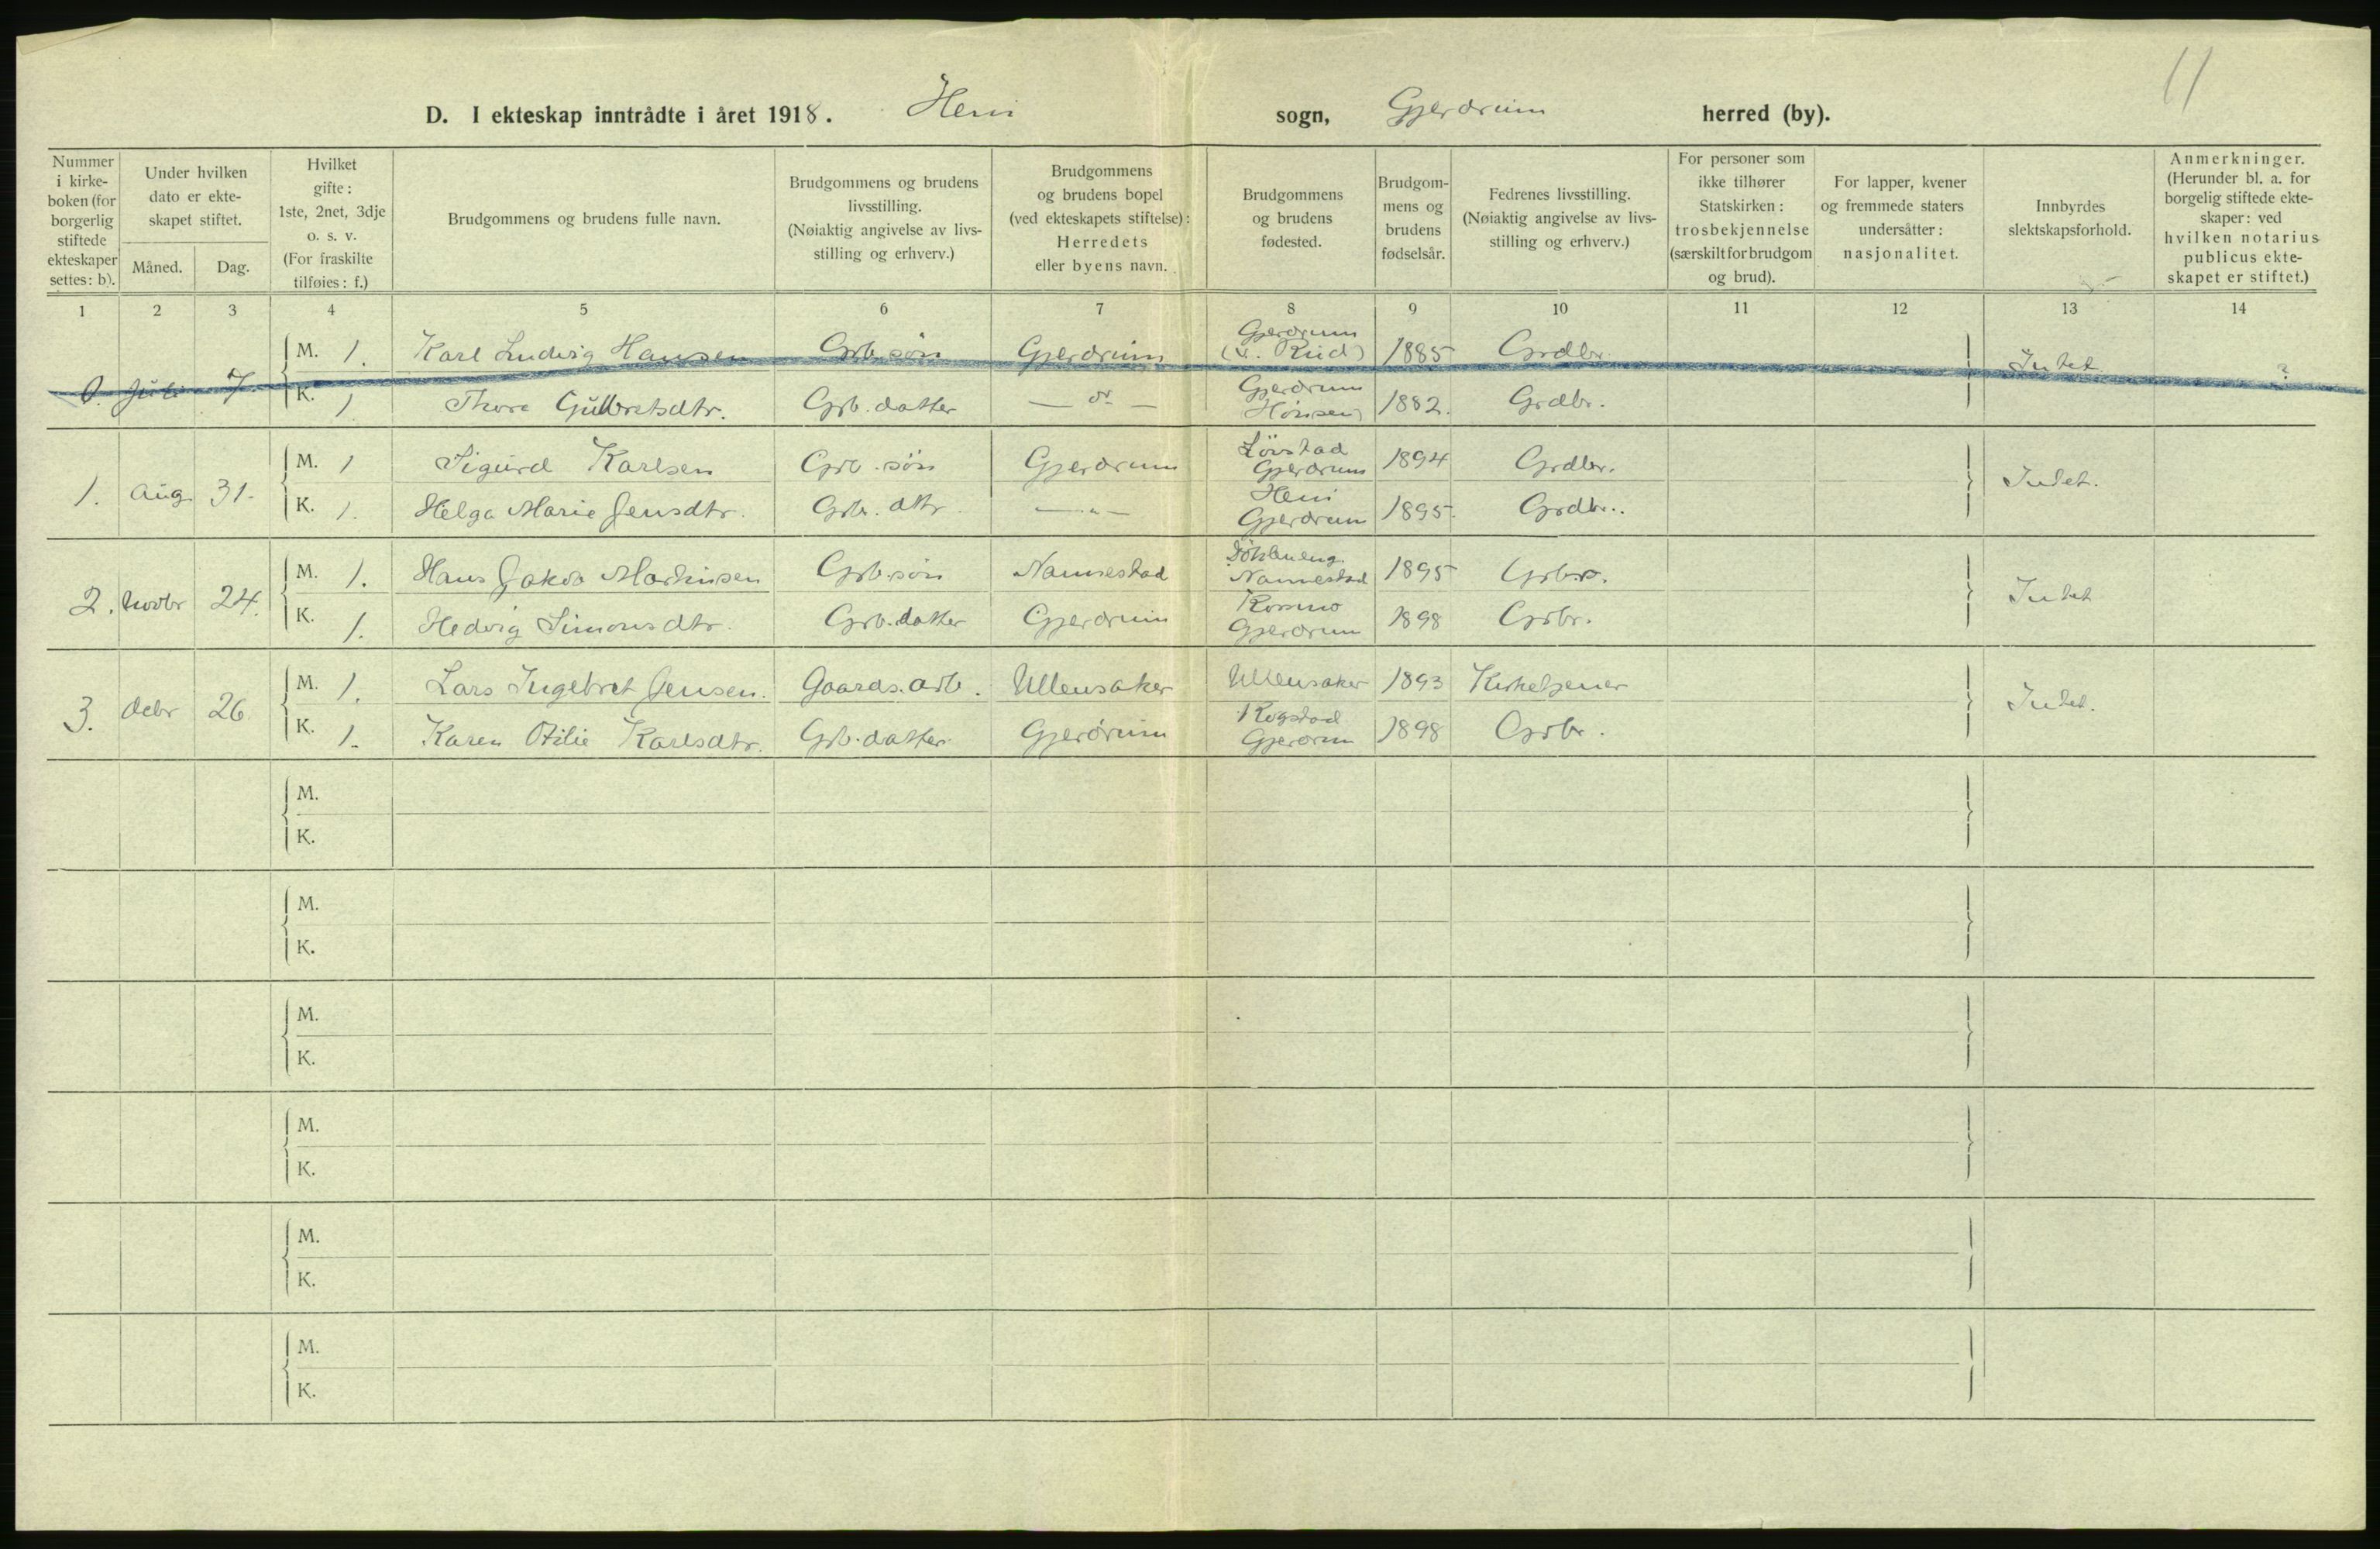 11
D. I ekteskap inntrådte i året 1918. Heni sogn, Gjerdrum herred (by).
Nummer i kirke-boken (for borgerlig stiftede ekteskaper settes: b).
Under hvilken dato er ekte-skapet stiftet.
Måned. Dag.
Hvilket gifte: 1ste, 2net, 3dje o. s. v. (For fraskilte tilføies: f.)
Brudgommens og brudens fulle navn.
Brudgommens og brudens livsstilling. (Nøiaktig angivelse av livs-stilling og erhverv.)
Brudgommens og brudens bopel (ved ekteskapets stiftelse): Herredets eller byens navn.
Brudgommens og brudens fødested.
Brudgom-mens og brudens fødselsår.
Fedrenes livsstilling. (Nøiaktig angivelse av livs-stilling og erhverv.)
For personer som ikke tilhører Statskirken: trosbekjennelse (særskilt for brudgom og brud).
For lapper, kvener og fremmede staters undersåtter: nasjonalitet.
Innbyrdes slektskapsforhold.
Anmerkninger. (Herunder bl. a. for borgelig stiftede ekte-skaper: ved hvilken notarius publicus ekte-skapet er stiftet.)
1 2 3 4 5 6 7 8 9 10 11 12 13 14
0. Juli 7.
M. 1. Karl Ludvig Hansen Grb. søn Gjerdrum Gjerdrum Rud) 1885 Grdbr. Intet ?
K. 1. Thora Gulbretsdtr. Grb. datter — do — Gjerdrum 1882. Grdbr.
1. Aug. 31.
M. 1 Sigurd Karlsen Grb. søn Gjerdrum Lönstad Gjerdrum 1894 Grdbr. Intet.
K. 1. Helga Marie Jensdtr. Grb. dtr. — „ — Heni Gjerdrum 1895. Grdbr.
2. Novbr 24.
M. 1. Hans Jakob Martinsen Grb. søn Nannestad Nannestad 1895 Grbr. Intet
K. 1. Hedvig Simonsdtr. Grb. datter Gjerdrum Gjerdrum 1898 Grbr.
3. Debr 26.
M. 1. Lars Ingebret Jensen. Gaards. arb. Ullensaker Ullensaker 1893 Kirketjener Intet.
K. 1. Karen Otilie Karlsdtr. Grb. datter Gjerdrum Rogstad Gjerdrum 1898 Grbr.
M.
K.
M.
K.
M.
K.
M.
K.
M.
K.
M.
K.